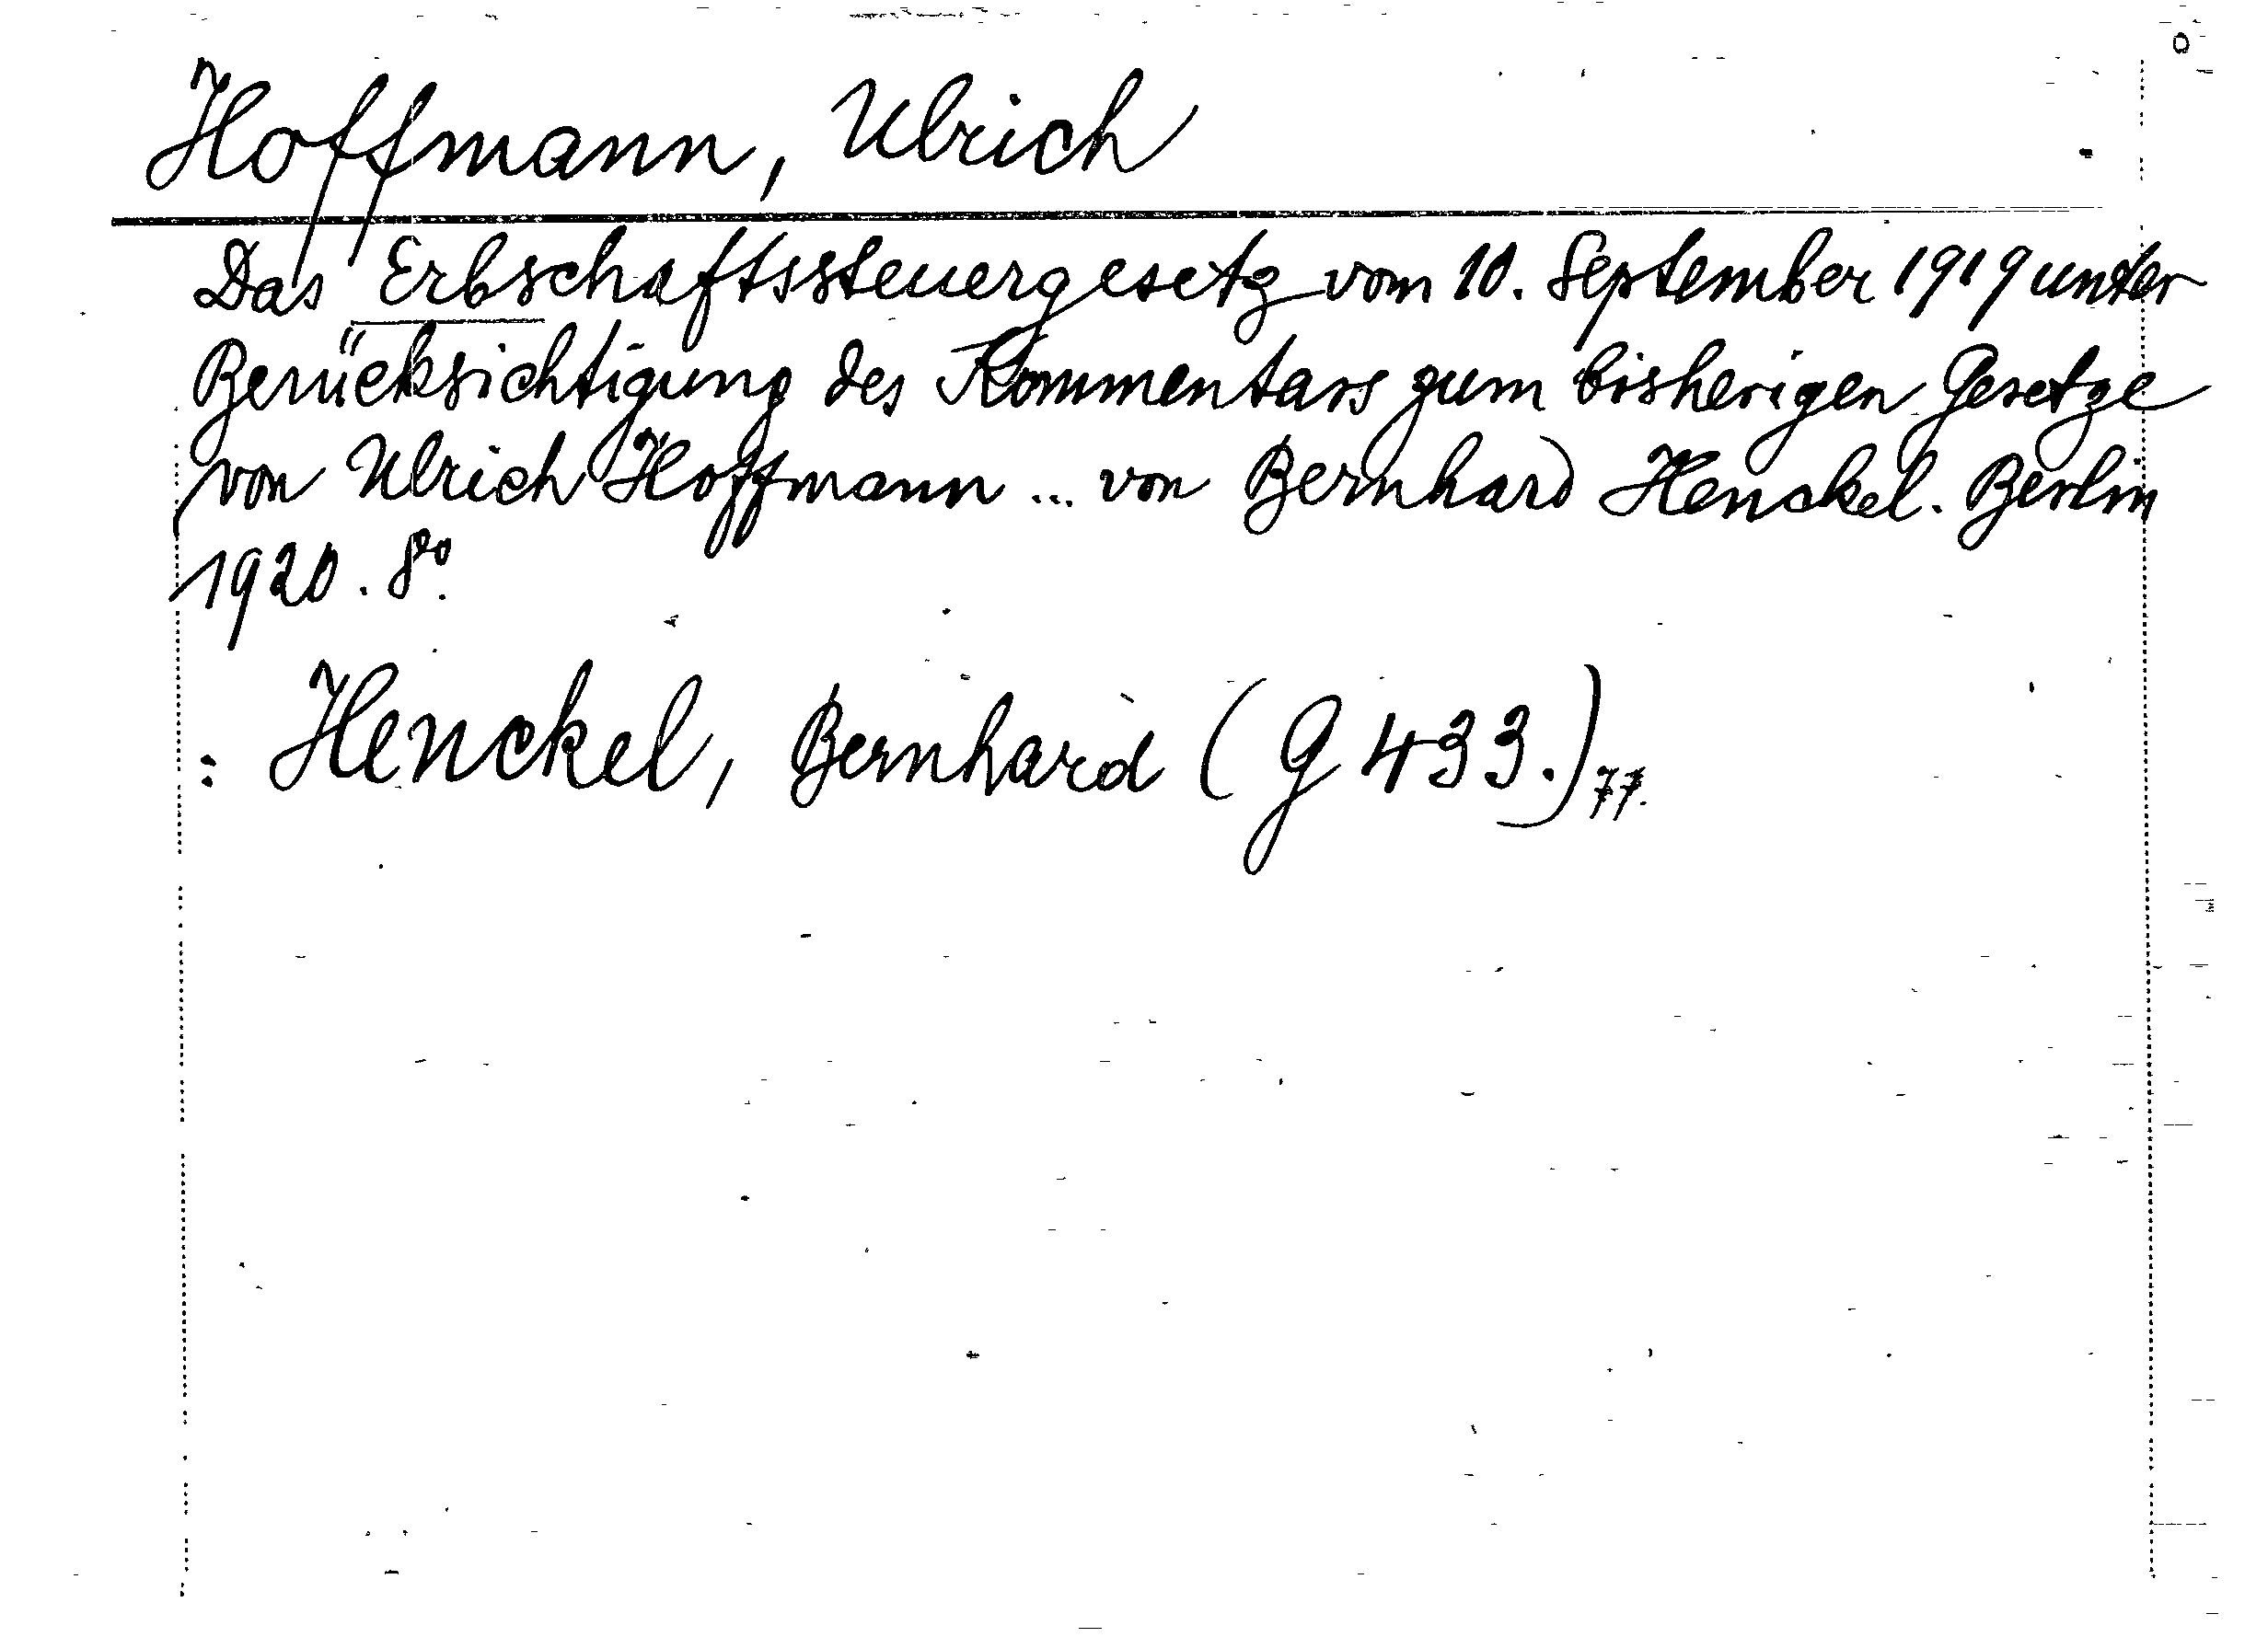 Hoffmann, Ulrich
Das Erbschaftssteuergesetz vom 10. September 1919 unter
Berücksichtigung des Kommentars zum bisherigen Gesetze
von Ulrich Hoffmann ... von Bernhard Henckel. Berlin
1920. 8º.
: Henckel, Bernhard (G 433.) 77.